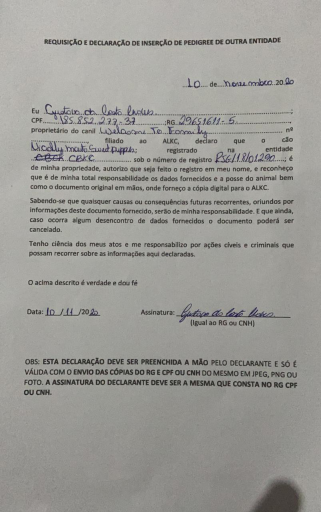 REQUISIÇÃO E DECLARAÇÃO DE INSERÇÃO DE PEDIGREE DE OUTRA ENTIDADE
10 de novembro 2020
Eu Gustavo da Costa
CPF 185.852.277-37 ;RG 29651611-5
proprietário do canil Welcome To Family nº
filiado ao ALKC, declaro que o cão
registrado na entidade
CBKC sob o número de registro RSG/18/01290 ; é
de minha propriedade, autorizo que seja feito o registro em meu nome, e reconheço
que é de minha total responsabilidade os dados fornecidos e a posse do animal bem
como o documento original em mãos, onde forneço a cópia digital para o ALKC.
Sabendo-se que quaisquer causas ou consequências futuras recorrentes, oriundos por
informações deste documento fornecido, serão de minha responsabilidade. E que ainda,
caso ocorra algum desencontro de dados fornecidos o documento poderá ser
cancelado.
Tenho ciência dos meus atos e me responsabilizo por ações cíveis e criminais que
possam recorrer sobre as informações aqui declaradas.
O acima descrito é verdade e dou fé
Data: 10 /11 /2020 Assinatura: Gustavo da Costa
(Igual ao RG ou CNH)
OBS: ESTA DECLARAÇÃO DEVE SER PREENCHIDA A MÃO PELO DECLARANTE E SÓ É
VÁLIDA COM O ENVIO DAS CÓPIAS DO RG E CPF OU CNH DO MESMO EM JPEG, PNG OU
FOTO. A ASSINATURA DO DECLARANTE DEVE SER A MESMA QUE CONSTA NO RG CPF
OU CNH.